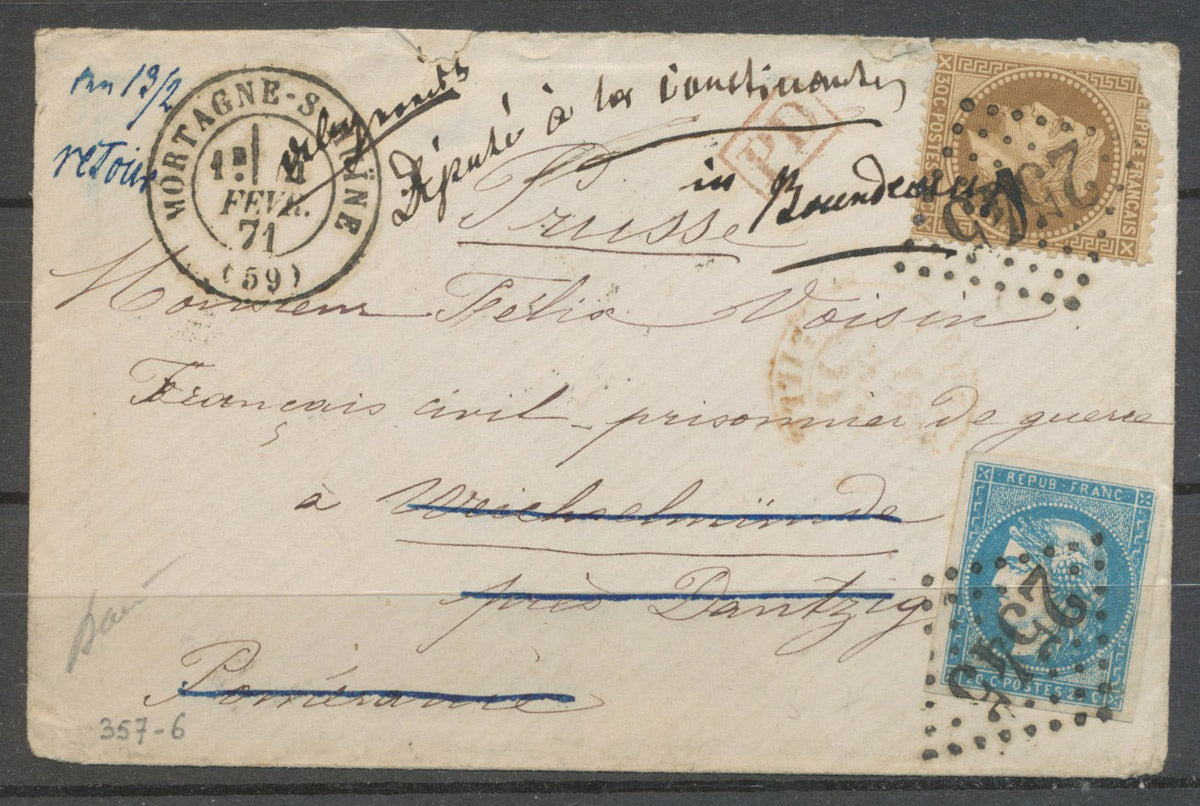 an 13/2
retour
MORTAGNE-S-HUINE
1E
FEVR.
71
(59)
Député à la Constituante
in
PD
Prusse
Monsieur Félix Voisin
Français civil - prisonnier de guerre
à Weichselmünde
près Dantzig
Poméranie
EMPIRE FRANÇAIS
30 C. POSTES
2545
REPUB. FRANC.
20 C. POSTES 20 C.
2545
357-6